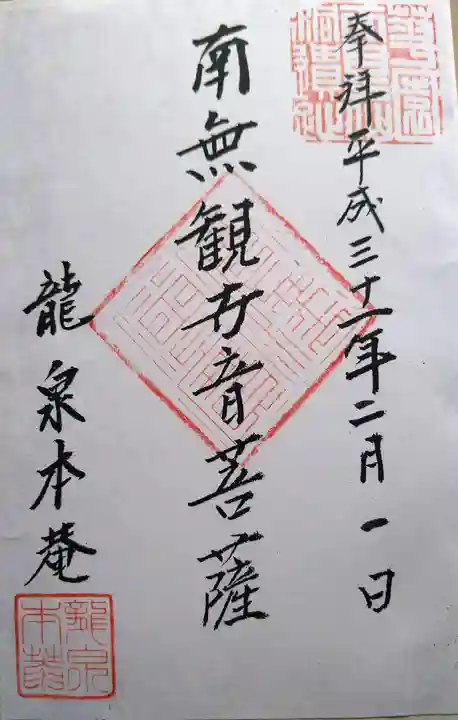 奉拝平成三十一年二月一日
南無観世音菩薩
龍泉本庵
龍泉
本菴